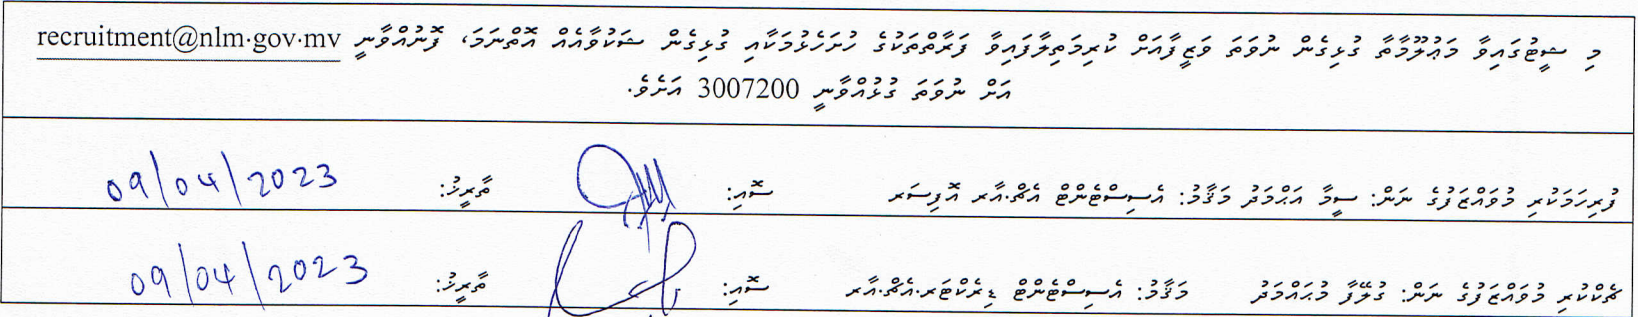 މި ޝީޓުގައިވާ މަޢުލޫމާތާ ގުޅިގެން ނުވަތަ ވަޒީފާއަށް ކުރިމަތިލާފައިވާ ފަރާތްތަކުގެ ހުށަހެޅުމަކާއި ގުޅިގެން ޝަކުވާއެއް އޮތްނަމަ، ފޮނުއްވާނީ recruitment@nlm.gov.mv
އަށް ނުވަތަ ގުޅުއްވާނީ 3007200 އަށެވެ.
ފުރިހަމަކުރި މުވައްޒަފުގެ ނަން: ސީމާ އަޙްމަދު މަޤާމު: އެސިސްޓެންޓް އެޗް.އާރ އޮފިސަރ ސޮއި: ތާރީޚު: 09/04/2023
ޗެކްކުރި މުވައްޒަފުގެ ނަން: ގުލޭފާ މުޙައްމަދު މަޤާމު: އެސިސްޓެންޓް ޑިރެކްޓަރ.އެޗް.އާރ ސޮއި: ތާރީޚު: 09/04/2023